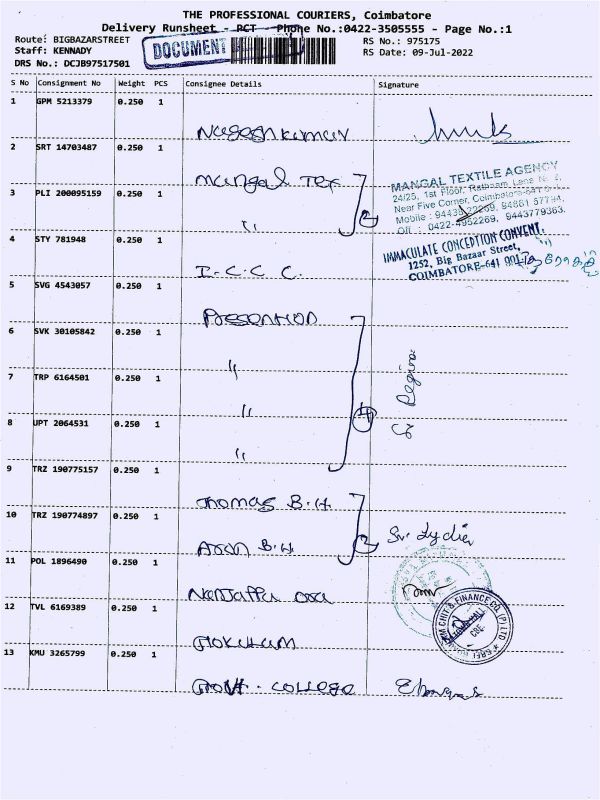 THE PROFESSIONAL COURIERS, Coimbatore
Delivery Runsheet - PCT - Phone No.:0422-3505555 - Page No.:1
Route: BIGBAZARSTREET
Staff: KENNADY
DRS No.: DCJB97517501
DOCUMENT
RS No.: 975175
RS Date: 09-Jul-2022
S No Consignment No Weight PCS Consignee Details Signature
1 GPM 5213379 0.250 1
Nageshkumar
2 SRT 14703487 0.250 1
Mangal Tex
3 PLI 200095159 0.250 1
"
2
MANGAL TEXTILE AGENCY
24/25, 1st Floor, Rathnam Lane
Near Five Corner, Coimbatore
Mobile :
Off : 0422-4952269, 9443779363.
4 STY 781948 0.250 1
I.C.C C.
IMMACULATE CONCEPTION CONVENT,
1252, Big Bazaar Street,
COIMBATORE-641 001
5 SVG 4543057 0.250 1
Presention
6 SVK 30105842 0.250 1
"
7 TRP 6164501 0.250 1
"
8 UPT 2064531 0.250 1
"
4
Sr Regina
9 TRZ 190775157 0.250 1
Thomas B.H.
10 TRZ 190774897 0.250 1
Arun B.H
2
Sr. Lydia
11 POL 1896490 0.250 1
Nanjappa
12 TVL 6169389 0.250 1
Gokulam
CHIT & FINANCE CO. (P) LTD
CBE
13 KMU 3265799 0.250 1
Govt. College